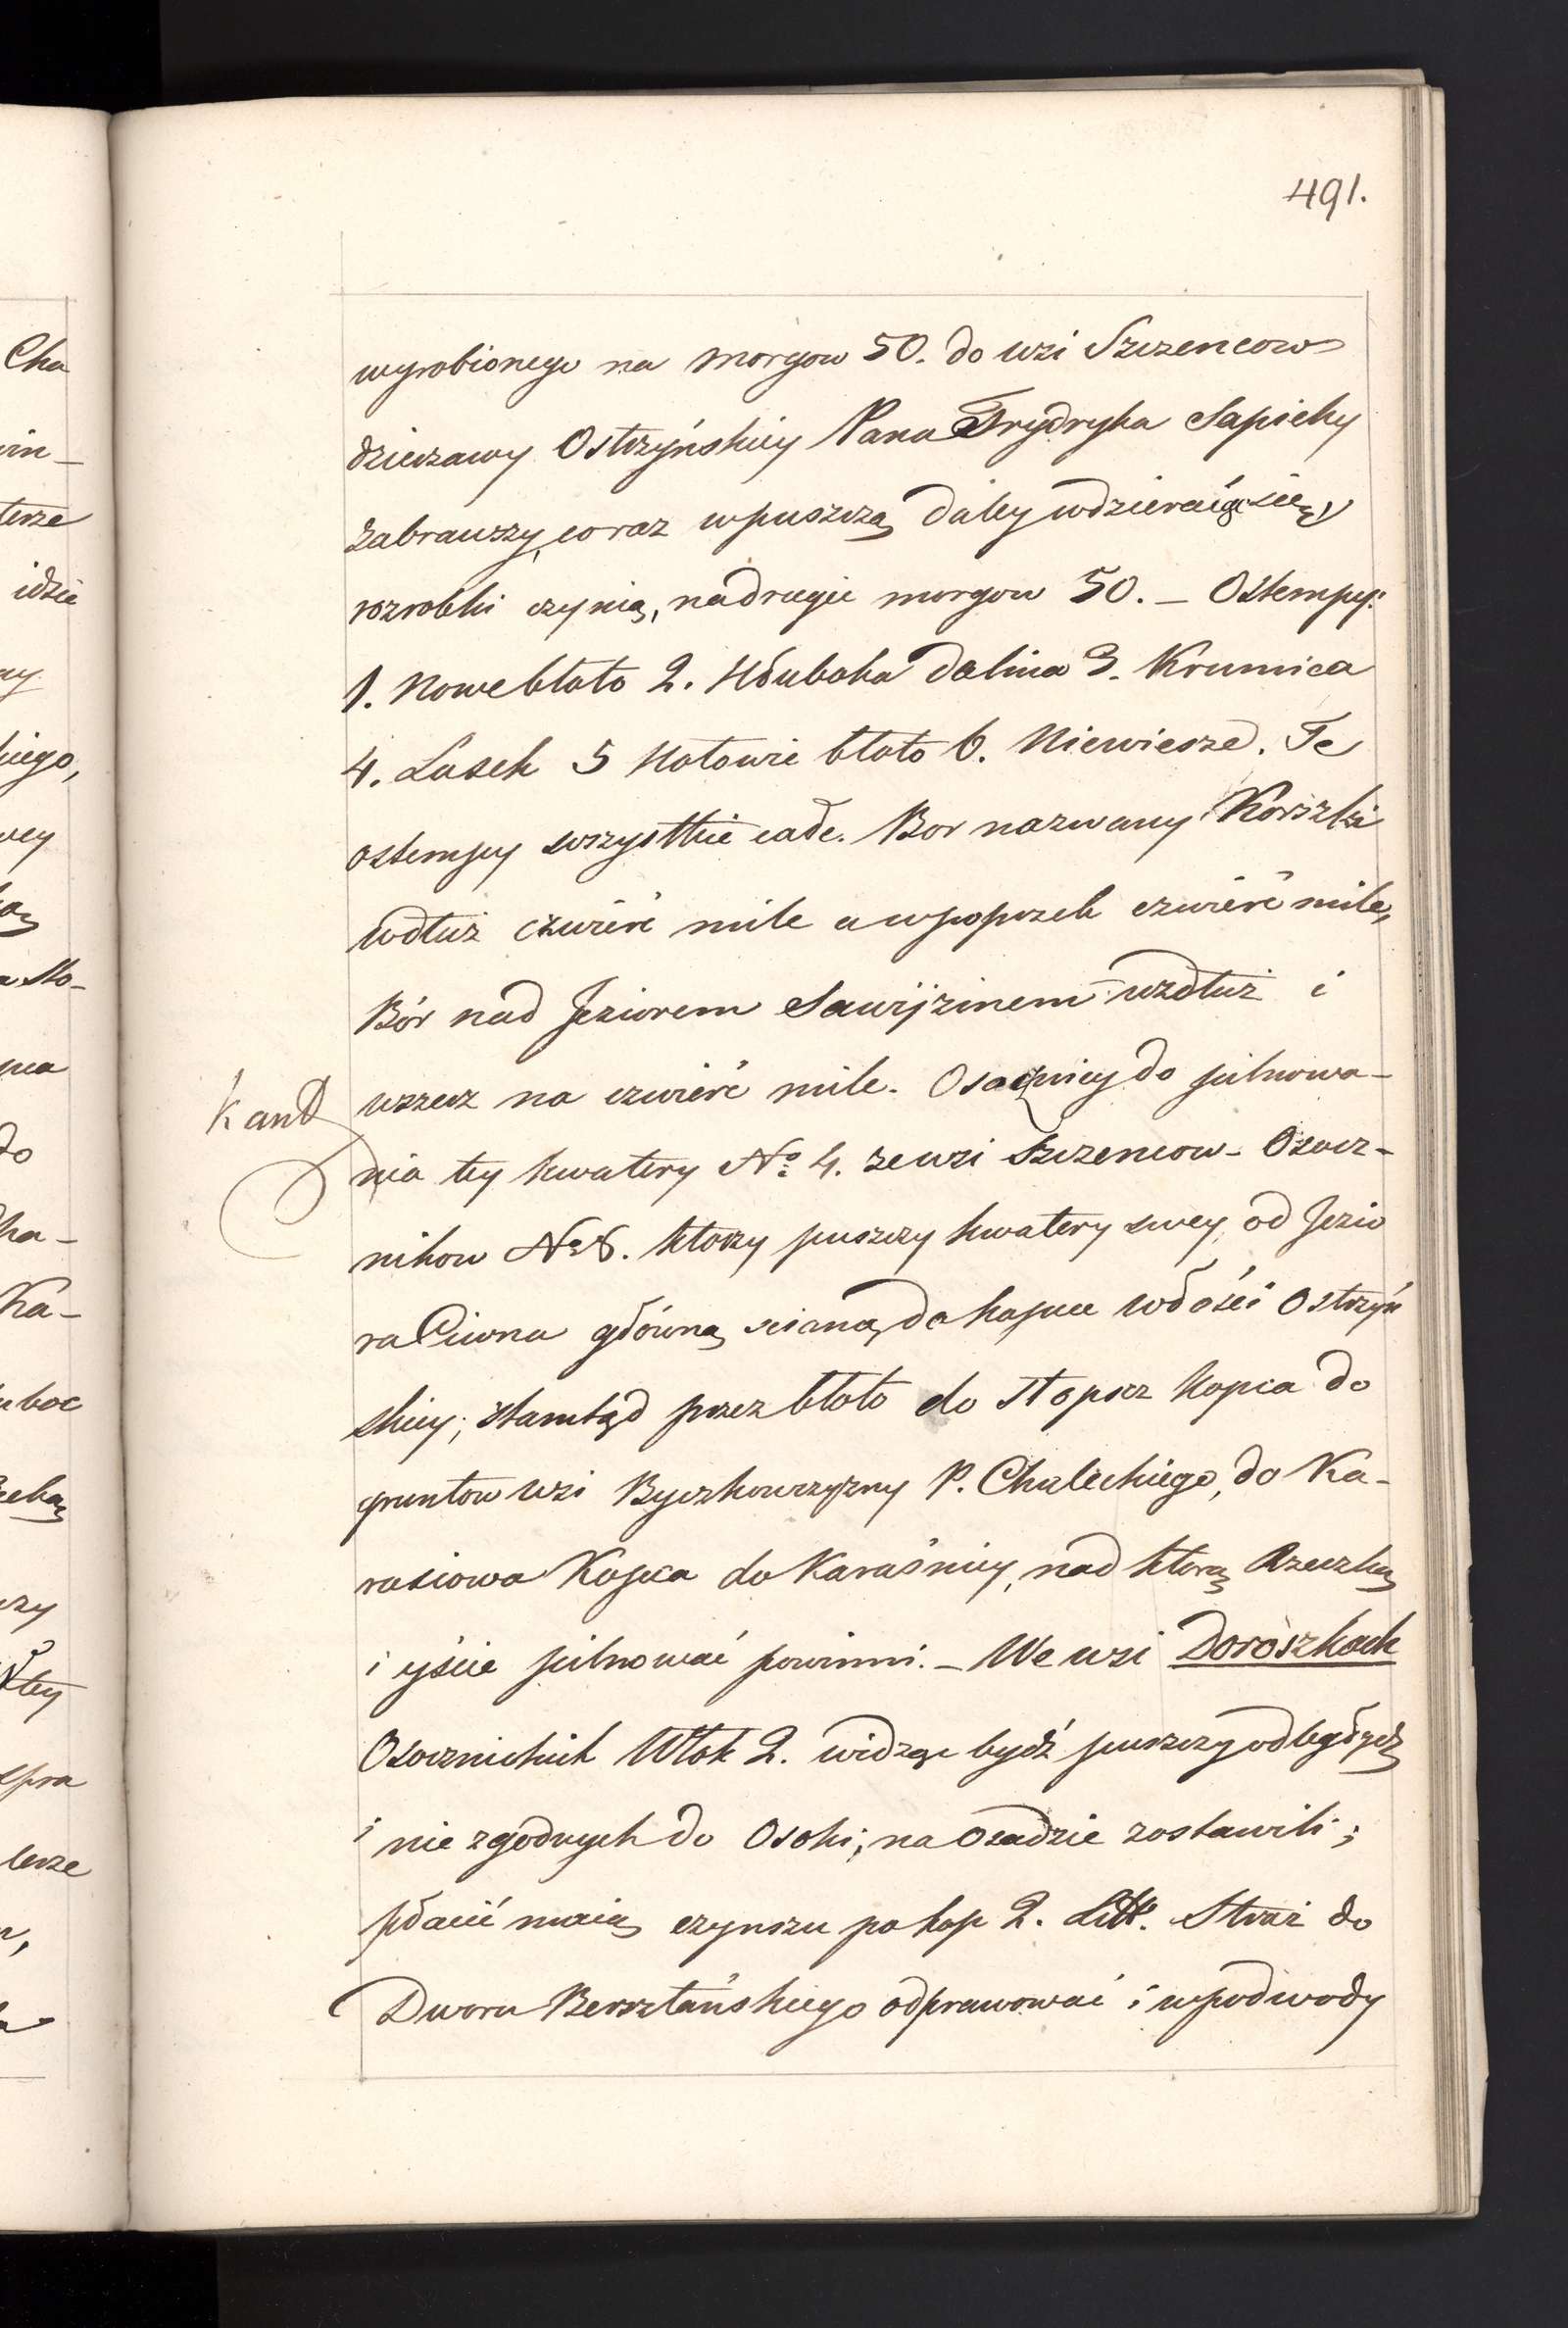 491.
wyrobionego na morgow 50. do wsi Szczencow
dzierzawy Ostrzyńskiey Pana Frydryka Sapiehy
zabrawszy, coraz wpuszczą daley wdzieraiąc się,
rozrobki czynią, na drugie morgow 50. _ Ostempy:
1. Nowe błoto 2. Hłuboka dolina 3. Krunica
4. Lasek 5 Hotowie błoto 6. Niewiesze. Te
ostempy wszystkie całe. Bor nazwany Korszki
wdłuż czwierć mile a wpoprzek czwierć mile,
Bór nad Jeziorem Sawijzinem wzdłuż i
wszerz na czwierć mile. Osacznicy do pilnowa-
nia tey kwatery No 4. ze wsi Szczencow - Osocz-
Kant
nikow No 8. ktorzy puszczy kwatery swey, od Jezio
ra Ciwna główną scianą do kopca włości Ostrzyń
skiey; ztamtąd przez błoto do Stopscz Kopca do
gruntow wsi Byczkowczyzny P. Chaleckiego, do Ka-
rasiowa Kopca do Karaśnicy, nad ktorą Rzeczką
i yście pilnować powinni. _ We wsi Doroszkach
Osocznickich Włok 2. widząc bydź puszczy odległych
i nie zgodnych do Osoki; na Osadzie zostawili;
płacić maią czynszu po kop 2. Litt. Straż do
Dwora Bersztańskiego odprawować i w podwody
Cha
win_
terze
idzie
kiego,
wey
do
Ka_
uboc
spra